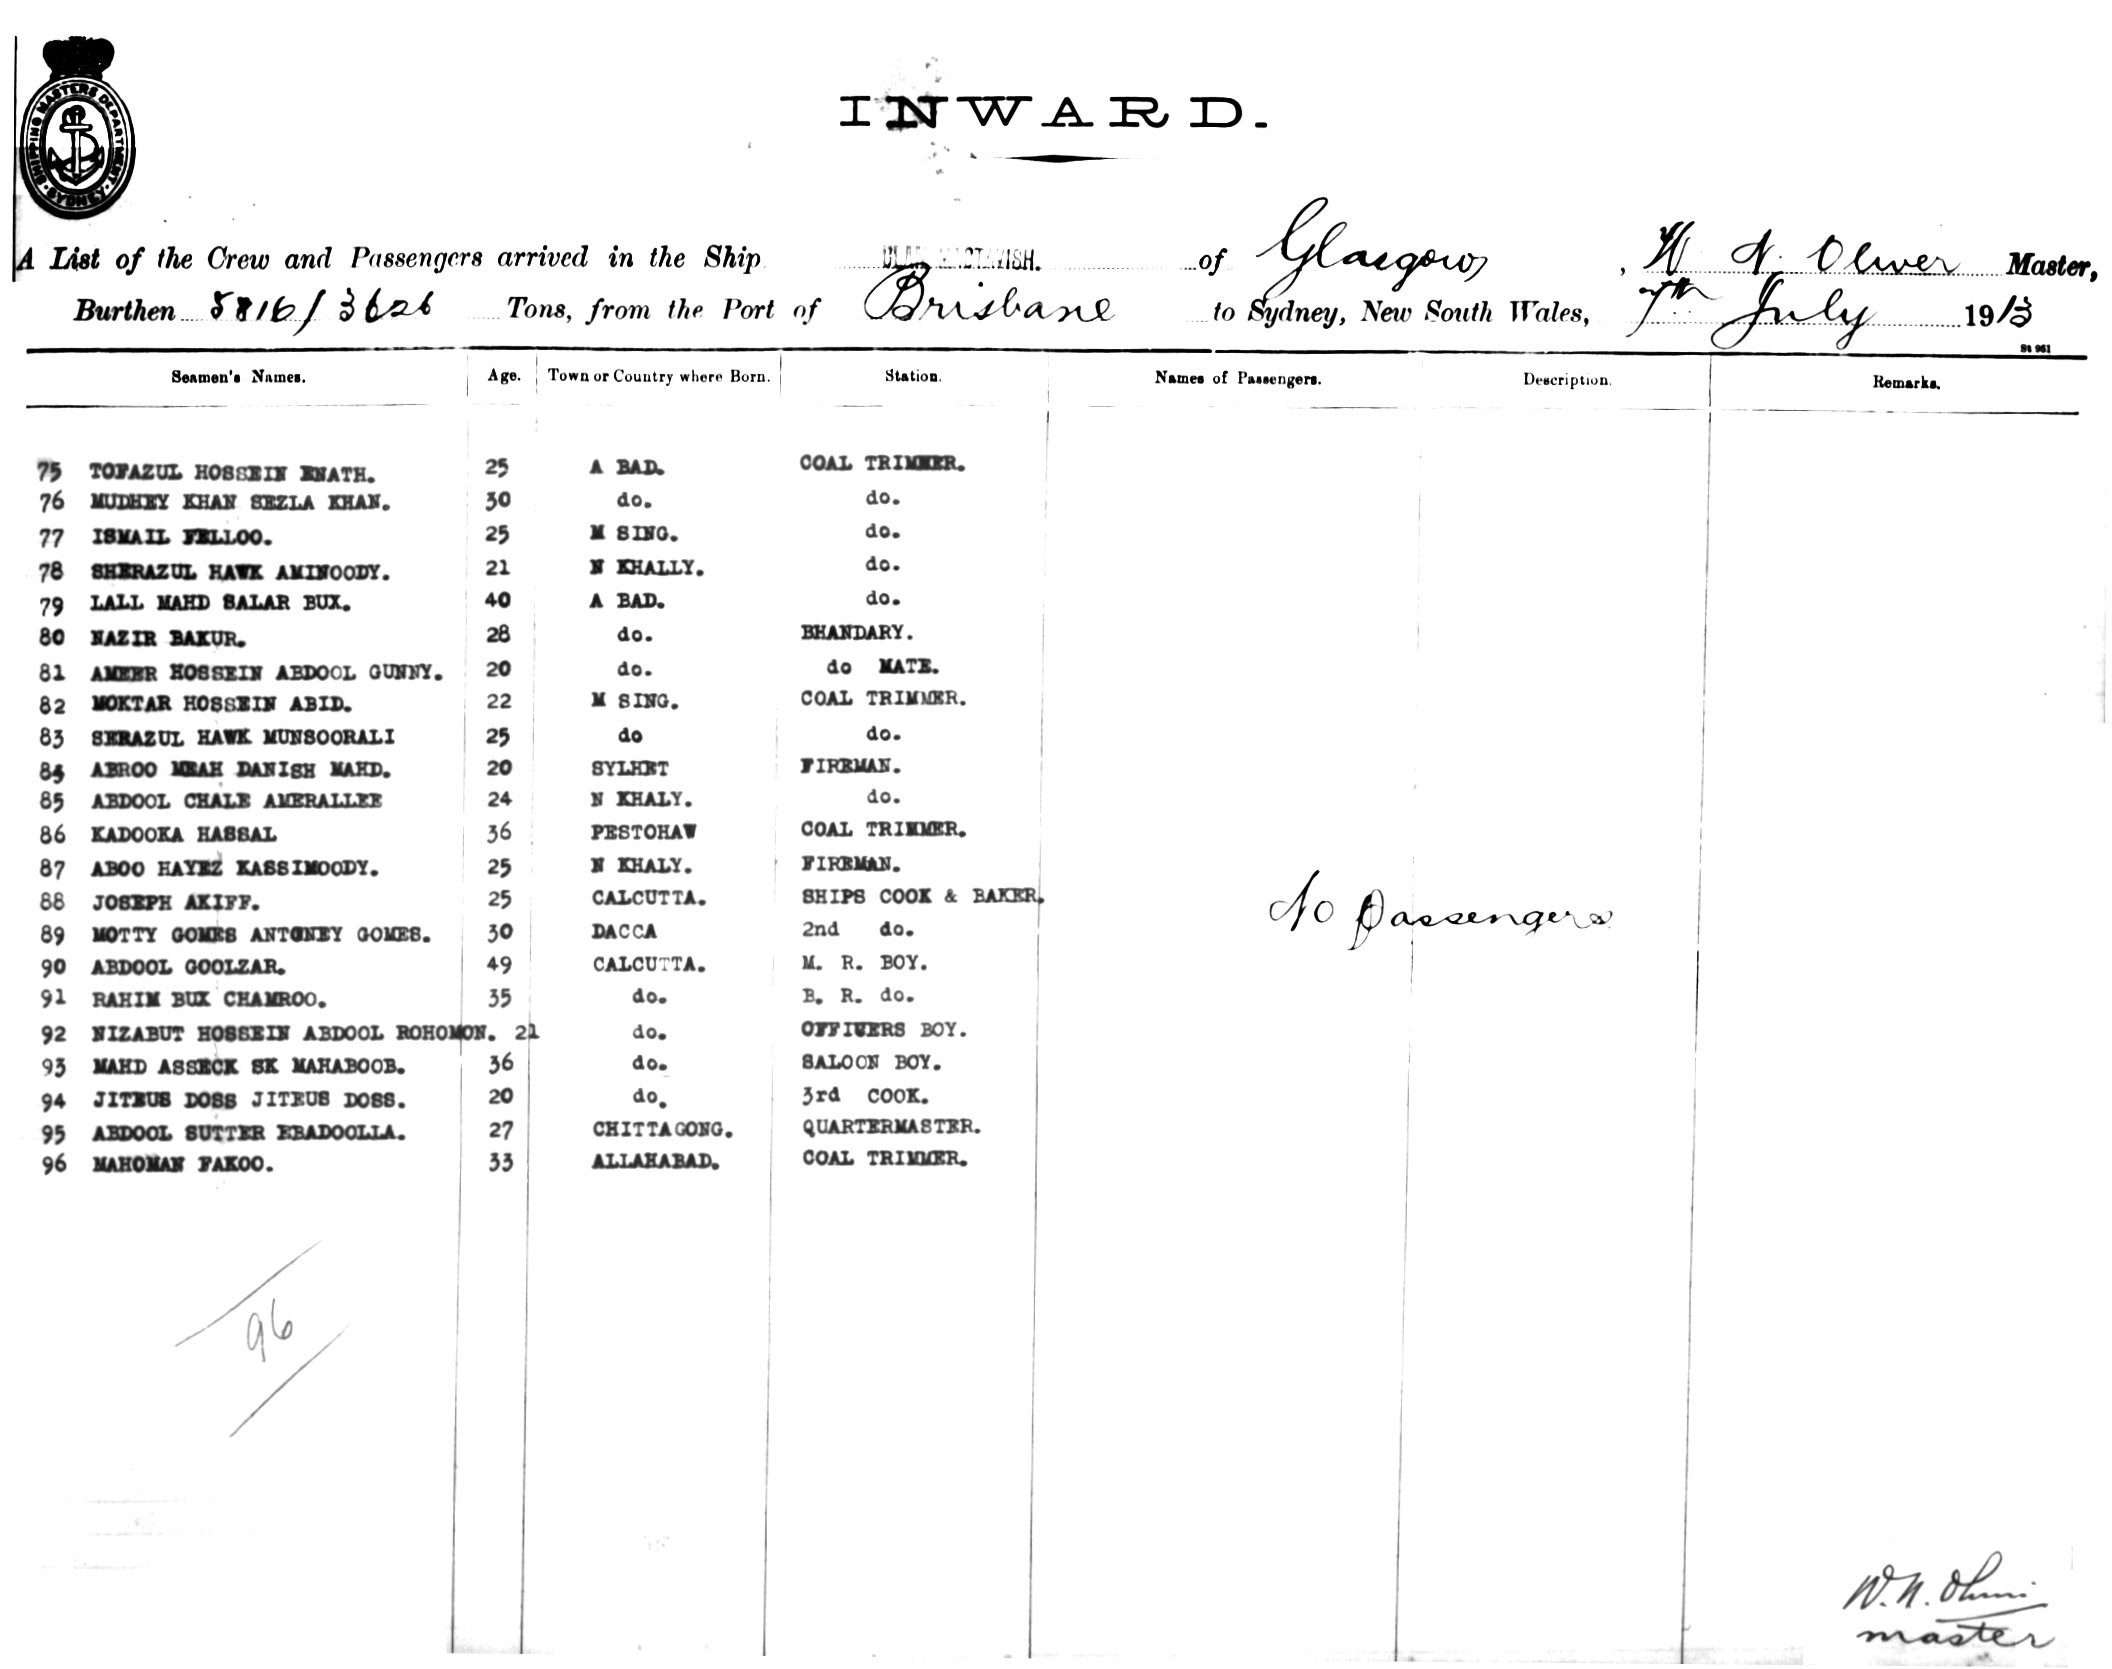 SHIPPING MASTERS DEPARTMENT · SYDNEY ·
INWARD.
A List of the Crew and Passengers arrived in the Ship CLAN MACTAVISH. of Glasgow, W. N. Oliver Master,
Burthen 5816/3626 Tons, from the Port of Brisbane to Sydney, New South Wales, 7th July 1913
St 961
Seamen's Names. Age. Town or Country where Born. Station. Names of Passengers. Description. Remarks.
75 TOFAZUL HOSSEIN ENATH. 25 A BAD. COAL TRIMMER.
76 MUDHEY KHAN SEZLA KHAN. 30 do. do.
77 ISMAIL FELLOO. 25 M SING. do.
78 SHERAZUL HAWK AMINOODY. 21 N KHALLY. do.
79 LALL MAHD SALAR BUX. 40 A BAD. do.
80 NAZIR BAKUR. 28 do. BHANDARY.
81 AMEER HOSSEIN ABDOOL GUNNY. 20 do. do MATE.
82 MOKTAR HOSSEIN ABID. 22 M SING. COAL TRIMMER.
83 SERAZUL HAWK MUNSOORALI 25 do do.
84 ABROO MEAH DANISH MAHD. 20 SYLHET FIREMAN.
85 ABDOOL CHALE AMERALLEE 24 N KHALY. do.
86 KADOOKA HASSAL 36 PESTOHAW COAL TRIMMER.
87 ABOO HAYEZ KASSIMOODY. 25 N KHALY. FIREMAN.
88 JOSEPH AKIFF. 25 CALCUTTA. SHIPS COOK & BAKER.
89 MOTTY GOMES ANTONEY GOMES. 30 DACCA 2nd do.
No Passengers
90 ABDOOL GOOLZAR. 49 CALCUTTA. M. R. BOY.
91 RAHIM BUX CHAMROO. 35 do. B. R. do.
92 NIZABUT HOSSEIN ABDOOL ROHOMON. 21 do. OFFICERS BOY.
93 MAHD ASSECK SK MAHABOOB. 36 do. SALOON BOY.
94 JITEUS DOSS JITEUS DOSS. 20 do. 3rd COOK.
95 ABDOOL SUTTER EBADOOLLA. 27 CHITTAGONG. QUARTERMASTER.
96 MAHOMAN FAKOO. 33 ALLAHABAD. COAL TRIMMER.
96
W. N. Oliver
master